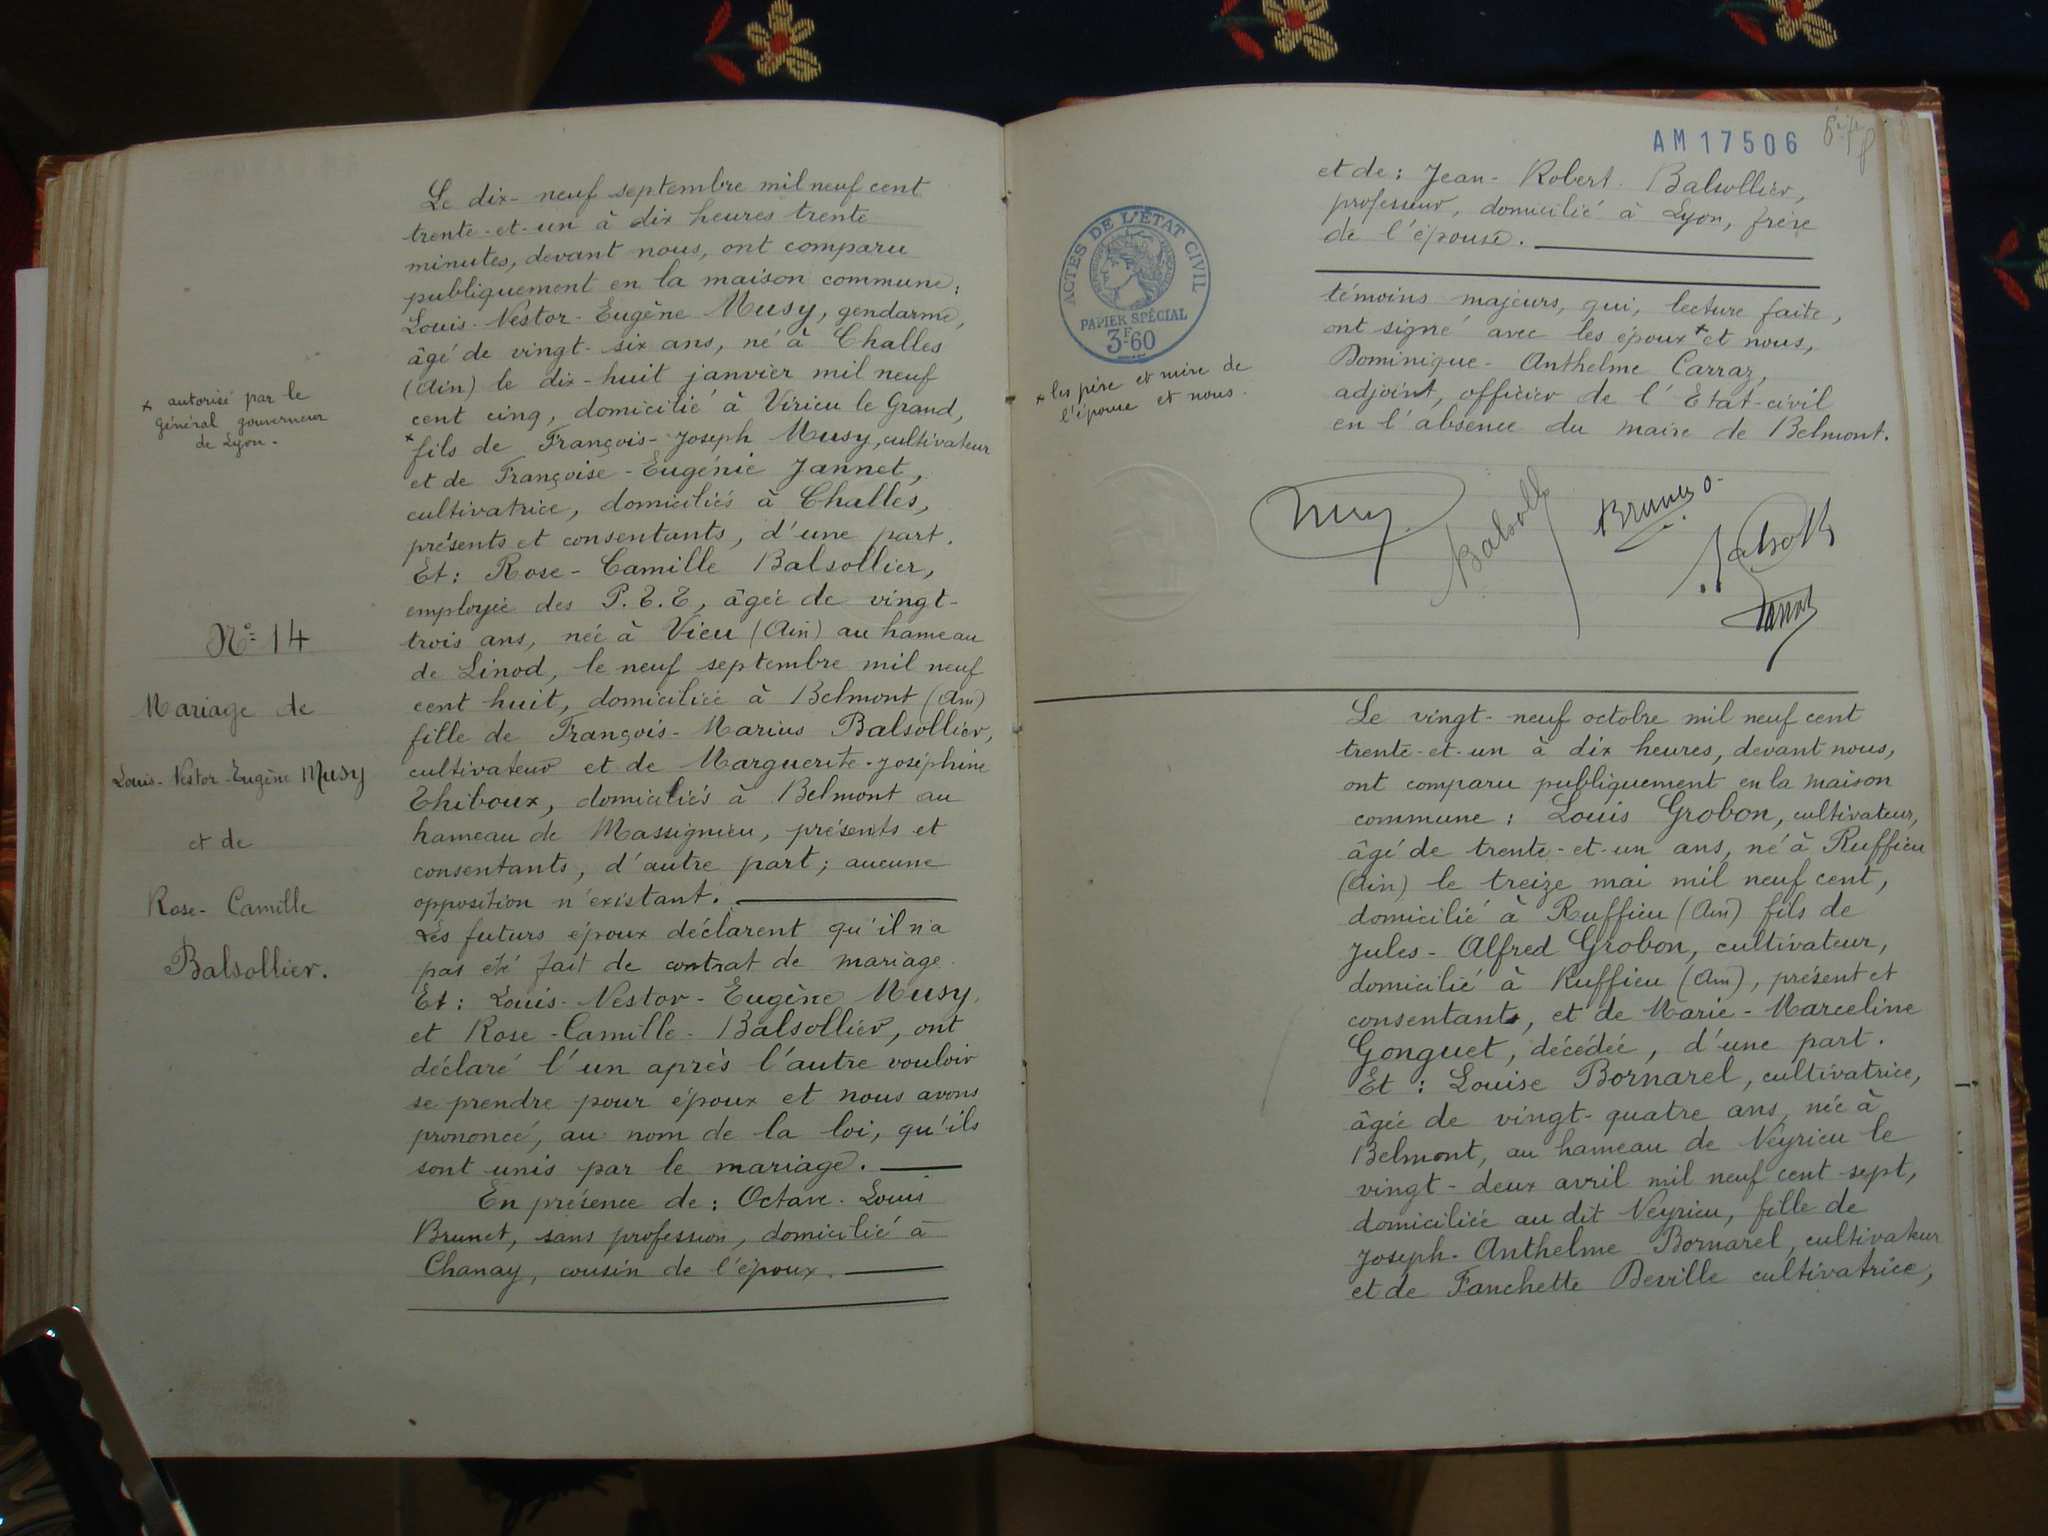 Le dix-neuf septembre mil neuf cent
trente-et-un à dix heures trente
minutes, devant nous, ont comparu
publiquement en la maison commune :
Louis-Nestor-Eugène Musy, gendarme,
âgé de vingt-six ans, né à Challes
(Ain) le dix-huit janvier mil neuf
cent cinq, domicilié à Virieu le Grand,
x fils de François-Joseph Musy, cultivateur
et de Françoise-Eugénie Jannet,
cultivatrice, domiciliés à Challes,
présents et consentants, d'une part.
Et : Rose-Camille Balsollier,
employée des P.T.T, âgée de vingt-
trois ans, née à Vieu (Ain) au hameau
de Linod, le neuf septembre mil neuf
cent huit, domiciliée à Belmont (Ain)
fille de François-Marius Balsollier,
cultivateur et de Marguerite-Joséphine
Thiboux, domiciliés à Belmont au
hameau de Massignieu, présents et
consentants, d'autre part ; aucune
opposition n'existant.
Les futurs époux déclarent qu'il n'a
pas été fait de contrat de mariage.
Et : Louis-Nestor-Eugène Musy,
et Rose-Camille-Balsollier, ont
déclaré l'un après l'autre vouloir
se prendre pour époux et nous avons
prononcé, au nom de la loi, qu'ils
sont unis par le mariage.
En présence de : Octave-Louis
Brunet, sans profession, domicilié à
Chanay, cousin de l'époux.
x autorisé par le
général gouverneur
de Lyon.
N° 14
Mariage de
Louis-Nestor-Eugène Musy
et de
Rose-Camille
Balsollier.
AM 17506
et de : Jean-Robert Balsollier,
professeur, domicilié à Lyon, frère
de l'épouse.
témoins majeurs, qui, lecture faite,
ont signé avec les époux x et nous,
Dominique-Anthelme Carraz,
adjoint, officier de l'Etat-civil
en l'absence du maire de Belmont.
ACTES DE L'ÉTAT CIVIL
PAPIER SPÉCIAL
3F60
x les père et mère de
l'épouse et nous.
Musy
Balsoll
Brunet
Balsoll
Carraz
Le vingt-neuf octobre mil neuf cent
trente-et-un à dix heures, devant nous,
ont comparu publiquement en la maison
commune : Louis Grobon, cultivateur,
âgé de trente-et-un ans, né à Ruffieu
(Ain) le treize mai mil neuf cent,
domicilié à Ruffieu (Ain) fils de
Jules-Alfred Grobon, cultivateur,
domicilié à Ruffieu (Ain), présent et
consentant, et de Marie-Marceline
Gonguet, décédée, d'une part.
Et : Louise Bornarel, cultivatrice,
âgée de vingt-quatre ans, née à
Belmont, au hameau de Neyrieu le
vingt-deux avril mil neuf cent sept,
domiciliée au dit Neyrieu, fille de
Joseph-Anthelme Bornarel, cultivateur
et de Fanchette Deville cultivatrice,